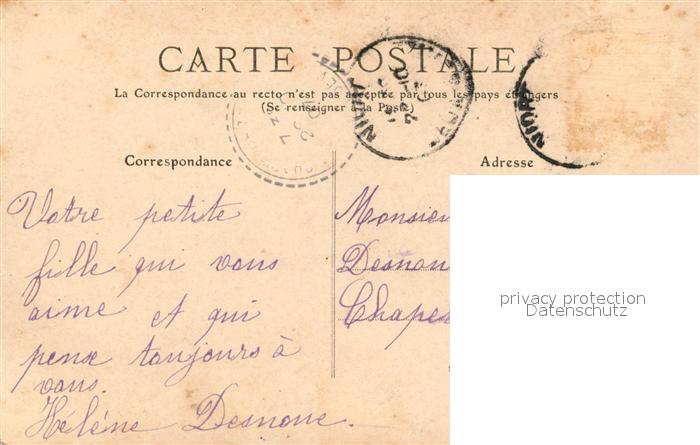 CARTE POSTALE
La Correspondance au recto n'est pas acceptée par tous les pays étrangers
(Se renseigner à la Poste)
NIORT
NIORT
Correspondance
Adresse
Votre petite
fille qui vous
aime et qui
pense toujours à
vous.
Hélène Desnoue.
Monsieu
Desnou
Chape
privacy protection
Datenschutz